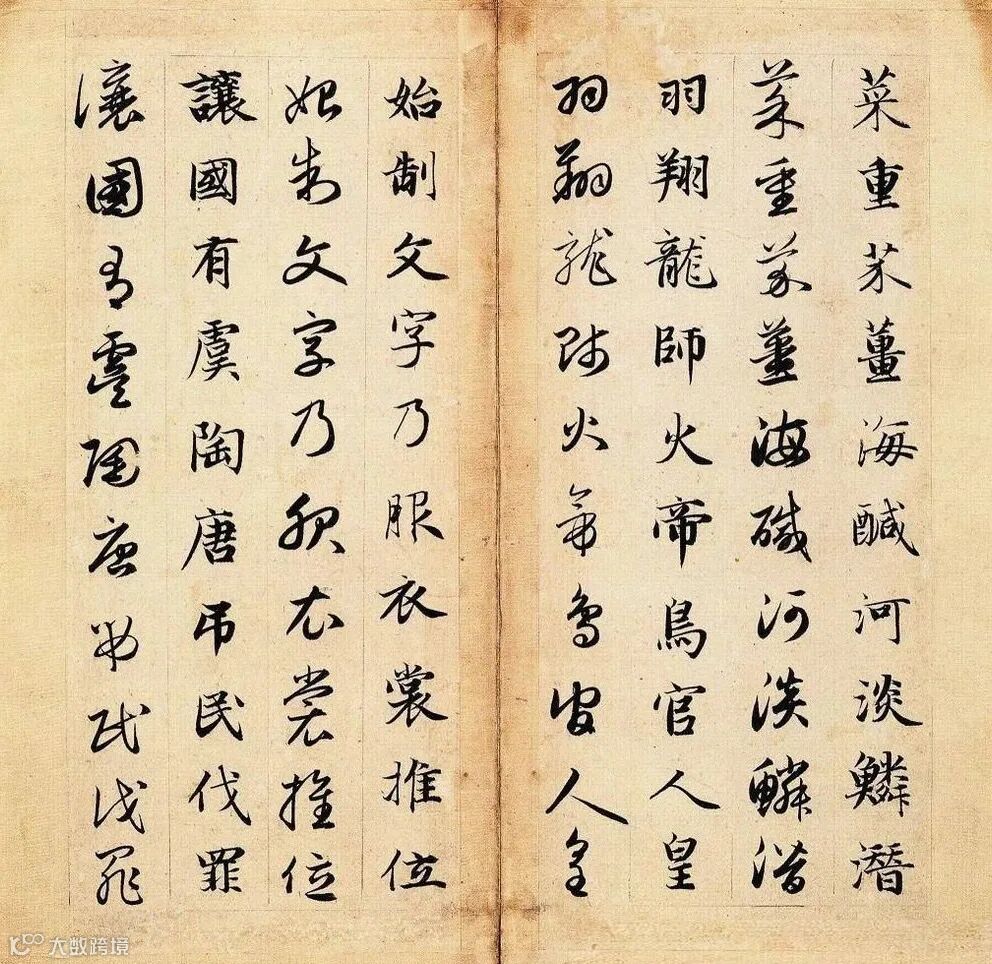 菜重芥薑海鹹河淡鱗潛
菜重芥薑海鹹河淡鱗潛
羽翔龍師火帝鳥官人皇
羽翔龍師火帝鳥官人皇
始制文字乃服衣裳推位
始制文字乃服衣裳推位
讓國有虞陶唐吊民伐罪
讓國有虞陶唐吊民伐罪
大数跨境